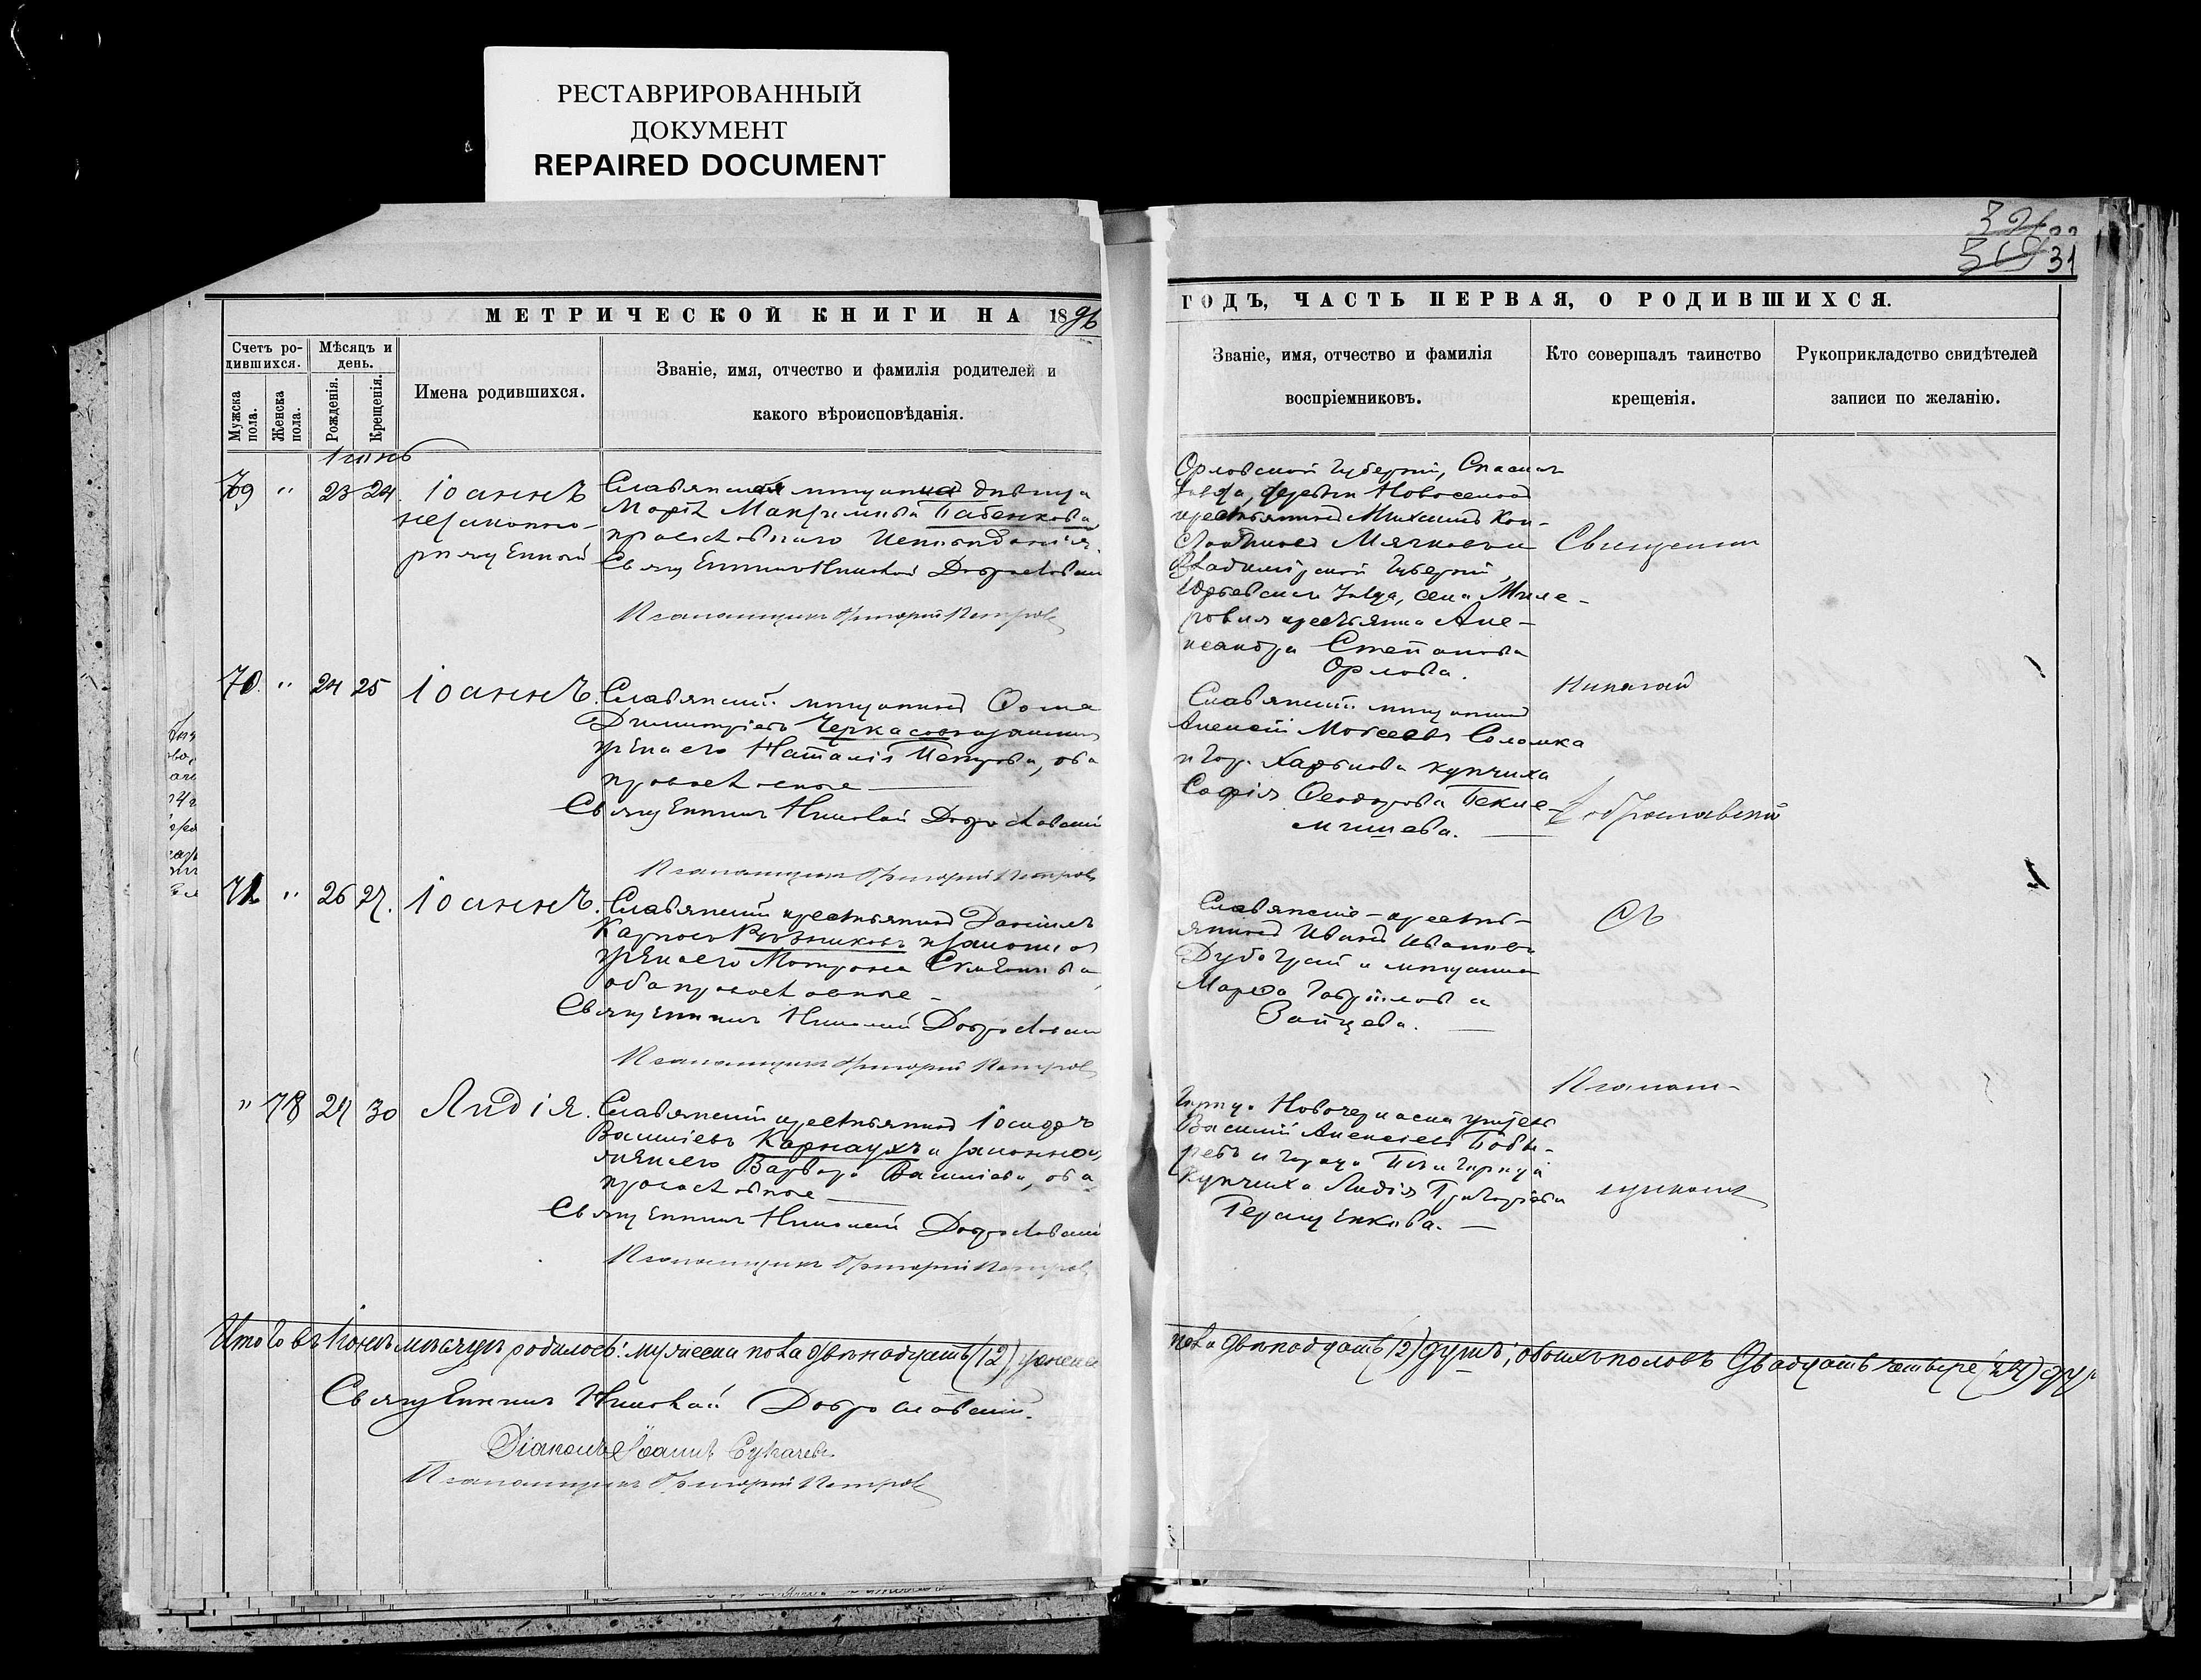 РЕСТАВРИРОВАННЫЙ
ДОКУМЕНТ
REPAIRED DOCUMENT
31
МЕТРИЧЕСКОЙ КНИГИ НА 1896
ГОДЪ, ЧАСТЬ ПЕРВАЯ, О РОДИВШИХСЯ.
Счетъ ро-
дившихся.
Мужска
пола.
Женска
пола.
Мѣсяцъ и
день.
Рожденія.
Крещенія.
Имена родившихся.
Званіе, имя, отчество и фамилія родителей и
какого вѣроисповѣданія.
Званіе, имя, отчество и фамилія
воспріемниковъ.
Кто совершалъ таинство
крещенія.
Рукоприкладство свидѣтелей
записи по желанію.
Іюнь
69 " 23 24. Іоаннъ
незаконно-
рожденный
Славянская мѣщанка дѣвица
Марія Максимова Бабенкова
православнаго исповѣданія.
Священникъ Николай Доброславскій
Псаломщикъ Григорій Петровъ
Орловской губерніи,
уѣзда, деревни Новоселокъ
крестьянинъ Михаилъ Кон-
Владимірской губерніи,
Юрьевскаго уѣзда, села
крестьянка Але-
ксандра Степанова
Орлова.
Священникъ
70. " 24 25 Іоаннъ.
Славянскій мѣщанинъ Ѳома
Димитріевъ Черкасовъ и законная
жена его Наталія Петрова, оба
православные
Священникъ Николай Доброславскій
Псаломщикъ Григорій Петровъ
Славянскій мѣщанинъ
Алексій Моѵсеевъ Соломка
и гор. Харькова купчиха
Софія Ѳеодорова Бекле-
мишева.
Николай
Доброславскій
71 " 26 27. Іоаннъ.
Славянскій крестьянинъ Даніилъ
Карповъ и законная
жена его Матрона
оба православные
Священникъ Николай Доброславскій
Псаломщикъ Григорій Петровъ
Славянскіе - крестья-
янинъ Иванъ Ивановъ
и мѣщанка
Марѳа Гавріилова
Зайцева.
съ
" 78 27 30 Лидія.
Славянскій крестьянинъ Ісидоръ
Василіевъ Карнаухъ и законная
жена его Варвара Василіева, оба
православные
Священникъ Николай Доброславскій
Псаломщикъ Григорій Петровъ
Новочеркасска
Василій Алексіевъ Бобы-
ревъ и города
купчиха Лидія Григоріева
Геращенкова.
Псалом-
щикомъ
Итого въ Іюнѣ мѣсяцѣ родилось: мужеска пола двѣнадцать (12) женска
пола двѣнадцать (12) душъ; обоихъ половъ двадцать четыре (24) души
Священникъ Николай Доброславскій.
Діаконъ Іоаннъ Сукачевъ
Псаломщикъ Григорій Петровъ